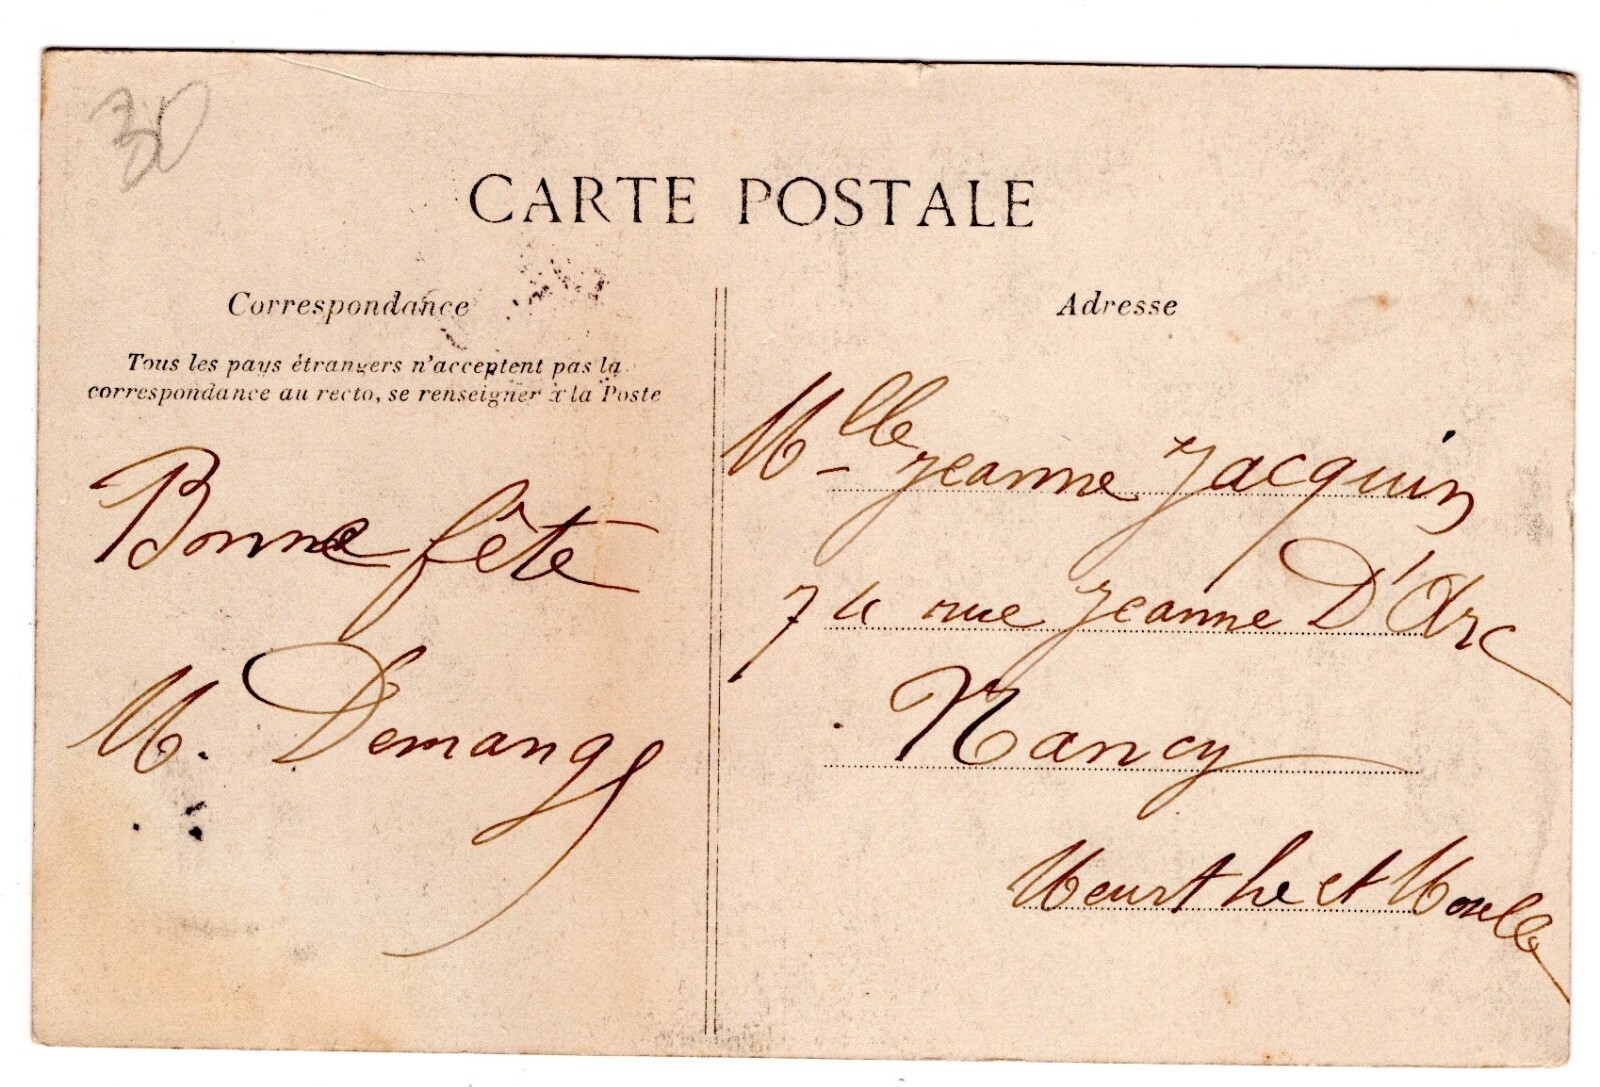 30
CARTE POSTALE
Correspondance
Tous les pays étrangers n'acceptent pas la
correspondance au recto, se renseigner à la Poste
Bonne fête
M. Demange
Adresse
Mlle Jeanne Jacquin
74 rue Jeanne D'Arc
Nancy
Meurthe et Moselle